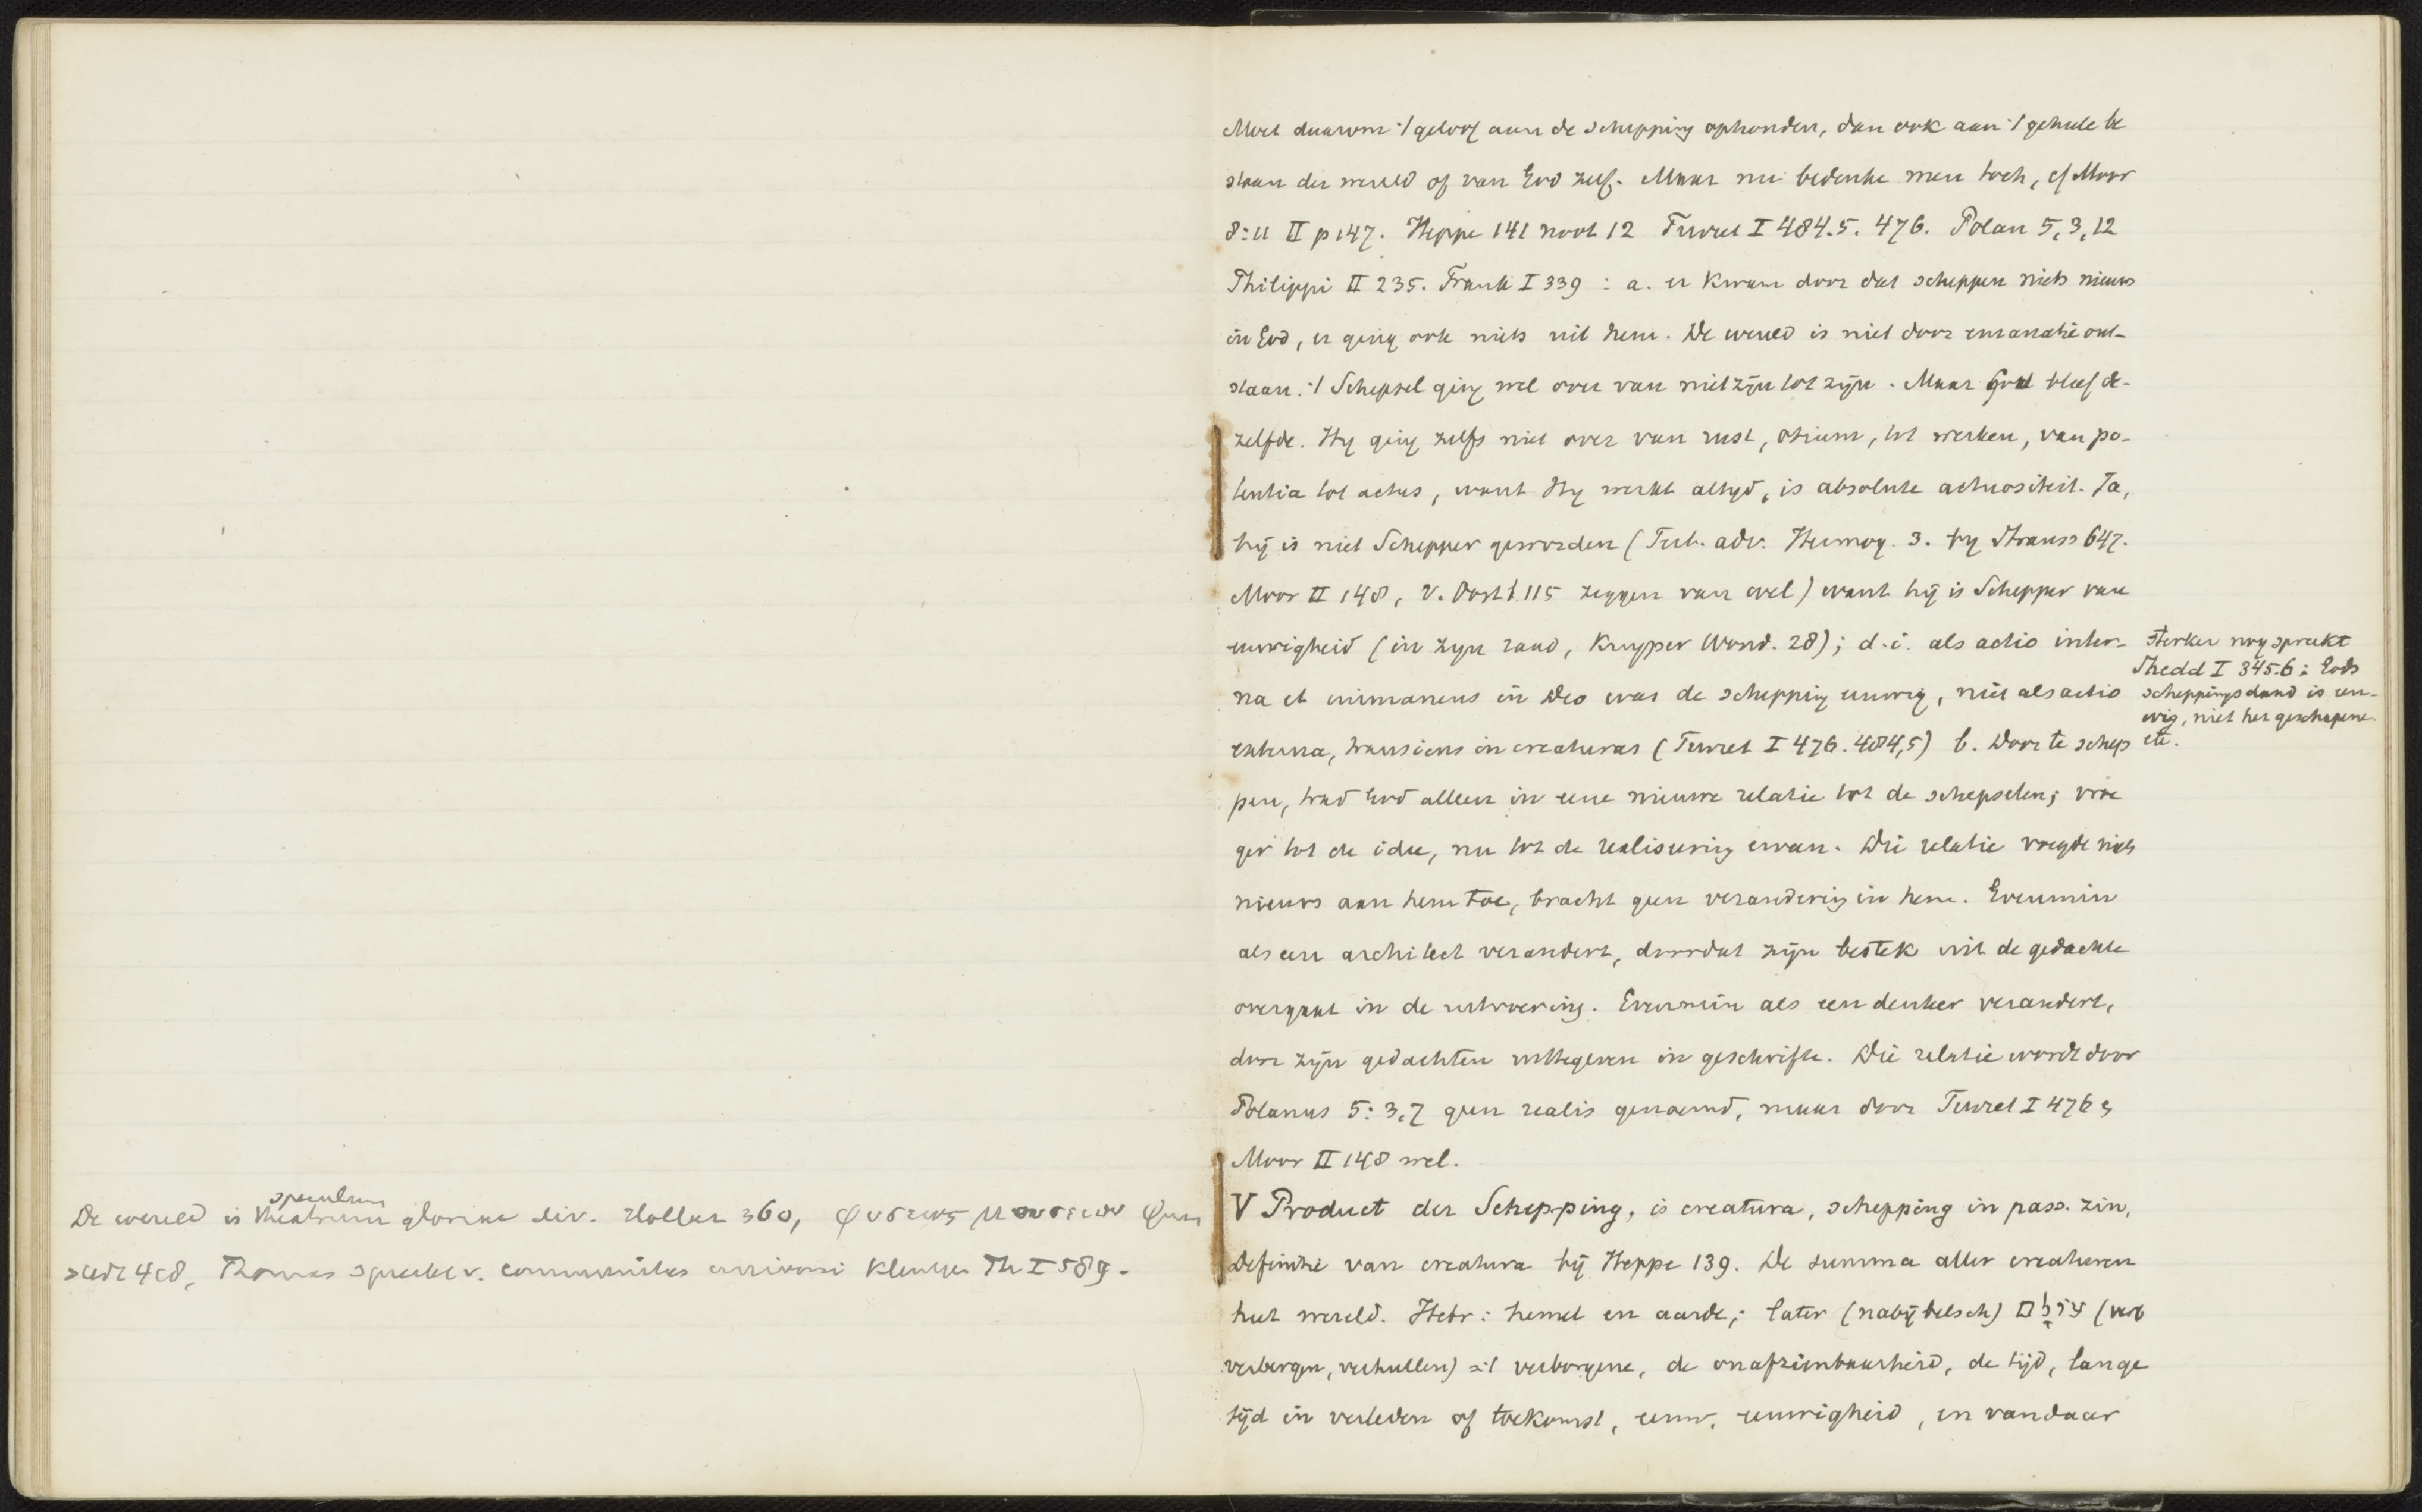 De wereld is theatrum gloriae div. Hollaz 360,
speculum
468, Thomas spreekt v. communitas universi Kleutgen Th I 589.
Moet daarom 't geloof aan de schepping ophouden, dan ook aan 't geheele be
staan der wereld of van God zelf. Maar nu bedenke men toch, cf Moor
II p 147. Heppe 141 noot 12 Turret I 484.5. 476. Polan 5,3,12
Philippi II 235. Frank I 339 : a. er kwam door dat scheppen niets nieuws
in God, er ging ook niets uit hem. De wereld is niet door emanatie ont-
staan. 't Schepsel ging wel over van niet zijn tot zijn. Maar God bleef de-
zelfde. Hy ging zelfs niet over van rust, otium, tot werken, van po-
tentia tot actus, want Hy werkt altyd, is absolute actuositeit. Ja,
hij is niet Schepper geworden (Tert. adv. Hermog. 3. by Strauss 647.
Moor II 148, v. Oost 115 zeggen van wel) want hij is Schepper van
eeuwigheid (in zyn raad, Kuyper Word. 28); d.i. als actio inter-
na et immanens in Deo was de schepping eeuwig, niet als actio
externa, transiens in creaturas (Turret I 476. 484,5) b. Door te schep
pen, trad God alleen in eene nieuwe relatie tot de schepselen; vroe
ger tot de idee, nu tot de realiseering ervan. Die relatie voegde niets
nieuws aan hem toe, bracht geen verandering in hem. Evenmin
als een architect verandert, doordat zijn bestek uit de gedachte
overgaat in de uitvoering. Evenmin als een denker verandert,
door zijn gedachten uittegeven in geschrifte. Die relatie wordt door
Polanus 5: 3,7 geen realis genoemd, maar door Turret I 476 en
Moor II 148 wel.
sterker nog spreekt
Shedd I 345.6: Gods
scheppingsdaad is eeu-
wig, niet het geschapene
etc.
V Product der Schepping, is creatura, schepping in pass. zin,
Definitie van creatura bij Heppe 139. De summa aller creaturen
heet wereld. Hebr: hemel en aarde; later (nabijbelsch) עולם (verb
verbergen, verhullen) = 't verborgene, de onafzienbaarheid, de tijd, lange
tijd in verleden of toekomst, eeuw, eeuwigheid, en vandaar